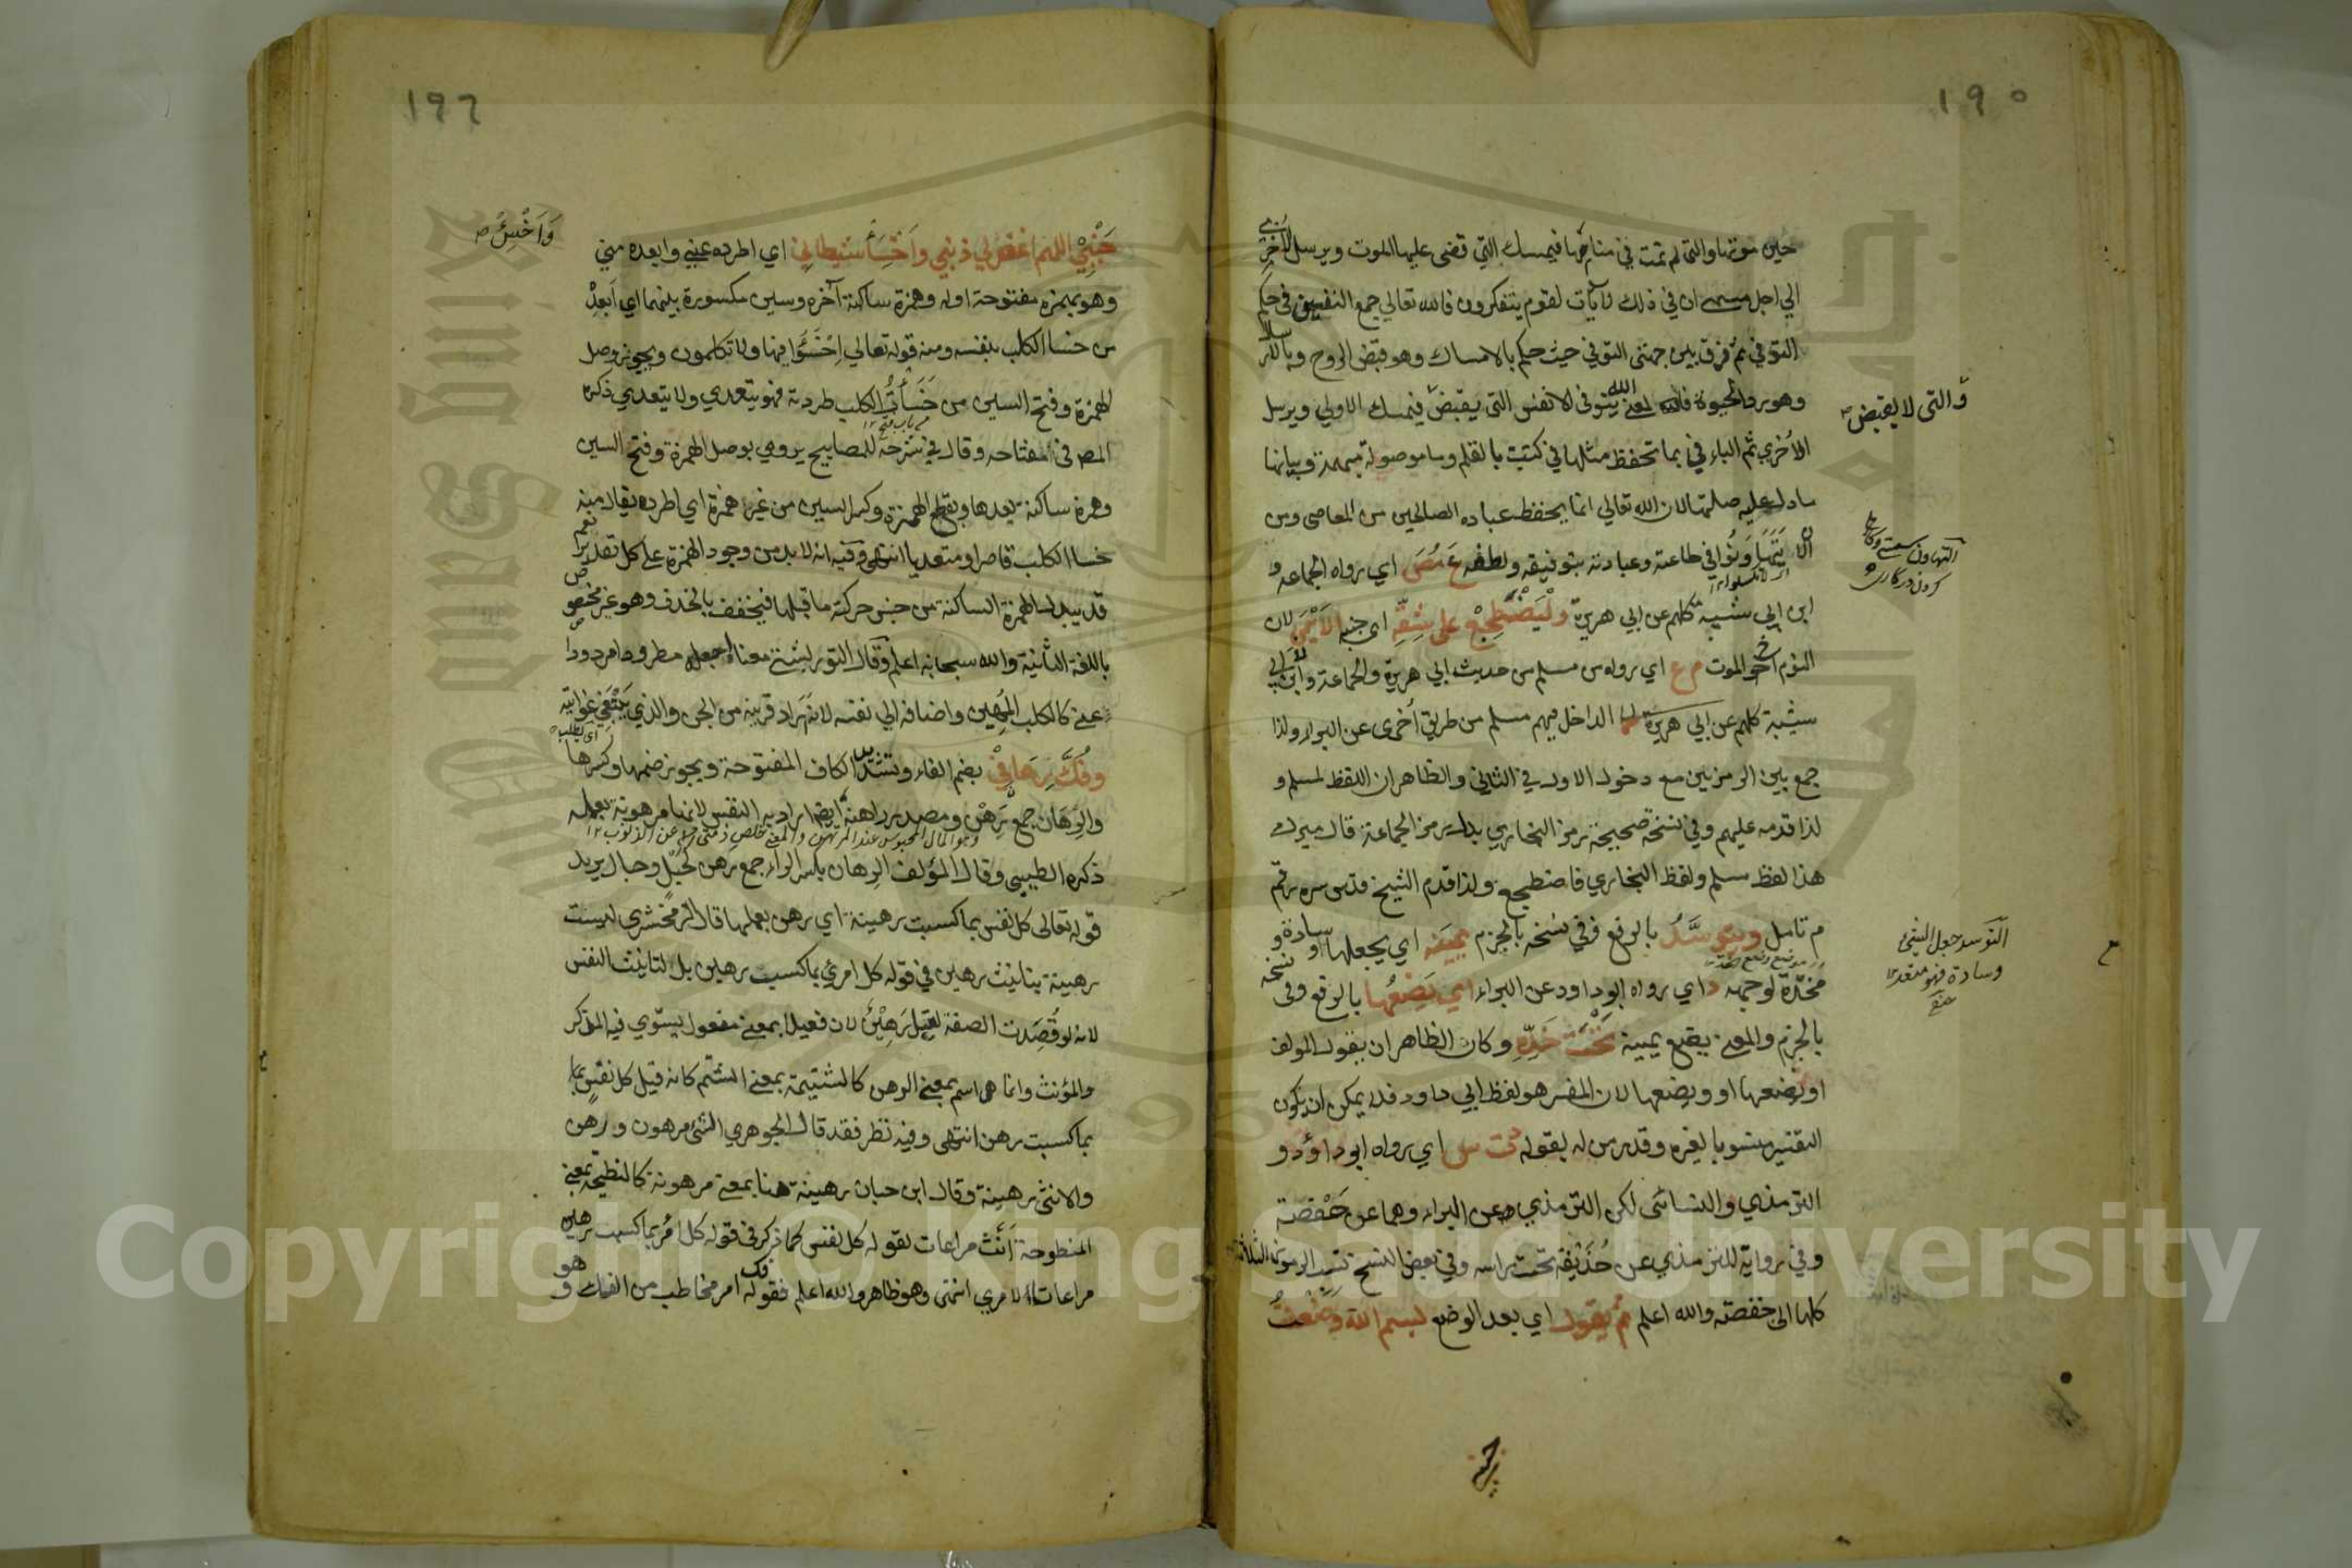 ١٩٥
حين موتها والتي لم تمت في منامها فيمسك التي قضى عليها الموت ويرسل الاخرى
الي اجل مسمى ان في ذلك لآيات لقوم يتفكرون فالله تعالي جمع النفسين في حكم
التوفي ثم فرق بين جهتي التوفي حيث حكم بالامساك وهو قبض الروح وبالارسال
وهو رد الحيوة فالله يتوفى الانفس التي يقبض فيمسك الاولي ويرسل
والتى لا يقبض
الأخري ثم الباء في بما تحفظ مثلها في كتبت بالقلم وما موصولة مبهمة وبيانها
ما دل عليه صلتها لان الله تعالي انما يحفظ عباده الصالحين من المعاصي ومن
ان لا يتهاونوا في طاعته وعبادته بتوفيقه ولطفه ع مص اي رواه الجماعة و
التهاون
ابن ابي شيبة كلهم عن ابي هريرة وليضطجع على شقه اي جنبه الأيمن لان
النوم اخو الموت م ع اي رواه مسلم من حديث ابي هريرة والجماعة وابن ابي
شيبة كلهم عن ابي هريرة الداخل فيهم مسلم من طريق أخرى عن البراء ولذا
جمع بين الرمزين مع دخول الاول في الثاني والظاهر ان اللفظ لمسلم و
لذا قدمه عليهم وفي نسخة صحيحة رمز البخاري بدل رمز الجماعة قال ميرك
هذا لفظ مسلم ولفظ البخاري فاضطجع ولذا قدم الشيخ قدس سره رقم
م تامل ويتوسد بالرفع وفي نسخة بالجزم يمينه اي يجعلها وسادة و
التوسد جعل الشيء
وسادة فهو متعد
مخدة لوجهه د اي رواه ابو داود عن البراء اي يضعها بالرفع وفى نسخة
بالجزم والمعنى يضع يمينه تحت خده وكان الظاهر ان يقول المولف
او يضعها او ويضعها لان المفسر هو لفظ ابي داود فلا يمكن ان يكون
التفسير منسوبا لغيره وقد رمز له بقوله د ت س اي رواه ابو داؤد و
الترمذي والنسائي لكن الترمذي عن البراء وهما عن حفصة
وفي رواية للترمذي عن حذيفة تحت راسه وفي بعض النسخ
كلها الى حفصة والله اعلم ثم يقول اي بعد الوضع بسم الله وضعت
جنبي
١٩٦
جنبي اللهم اغفر لي ذنبي واخسأ شيطاني اي اطرده عني وابعده مني
واخسئ
وهو بهمزة مفتوحة اوله وهمزة ساكنة آخره وسين مكسورة بينهما اي ابعد
من خسا الكلب بنفسه ومنه قوله تعالي اخسؤا فيها ولا تكلمون ويجوز وصل
الهمزة وفتح السين من خسأت الكلب طردته فهو يتعدي ولا يتعدي ذكره
المص في المفتاح وقال في شرحه للمصابيح يروي بوصل الهمزة وفتح السين
وهمزة ساكنة بعدها وبقطع الهمزة وكسر السين من غير همزة اي اطرده يقال منه
خسا الكلب قاصرا ومتعديا انتهى وفيه انه لا بد من وجود الهمزة على كل تقدير نعم
قد يبدل الهمزة الساكنة من جنس حركة ما قبلها فيخفف بالحذف وهو غير مختص
باللغة الثانية والله سبحانه اعلم وقال التوربشتي معناه اجعله مطرودا مردودا
عني كالكلب المهين واضافه الي نفسه لانه اراد قرينه من الجن والذي يبتغي غوايته
وفك رهاني بضم الفاء وتشديد الكاف المفتوحة ويجوز ضمها وكسرها
والرهان جمع رهن ومصدر راهنه ايضا اراد به النفس لانها مرهونة بعملها
ذكره الطيبي وقال المؤلف الرهان بكسر الراء جمع رهن كحبل وحبال يريد
قوله تعالى كل نفس بما كسبت رهينة اي رهن بعملها قال الزمخشري ليست
رهينة بتانيث رهين في قوله كل امرئ بما كسب رهين بل لتانيث النفس
لانه لو قصدت الصفة لقيل رهين لان فعيلا بمعنى مفعول يستوي فيه المذكر
والمؤنث وانما هي اسم بمعنى الرهن كالشتيمة بمعنى الشتم كانه قيل كل نفس
بما كسبت رهن انتهى وفيه نظر فقد قال الجوهري الشئ مرهون ورهن
والانثى رهينة وقال ابن حبان رهينة هنا بمعنى مرهونة كالنطيحة بمعنى
المنطوحة أنث مراعات لقوله كل نفس كما ذكر في قوله كل امرئ بما كسب رهين
مراعات لامرئ انتهى وهو ظاهر والله اعلم فقوله فك امر مخاطب من الفك وهو